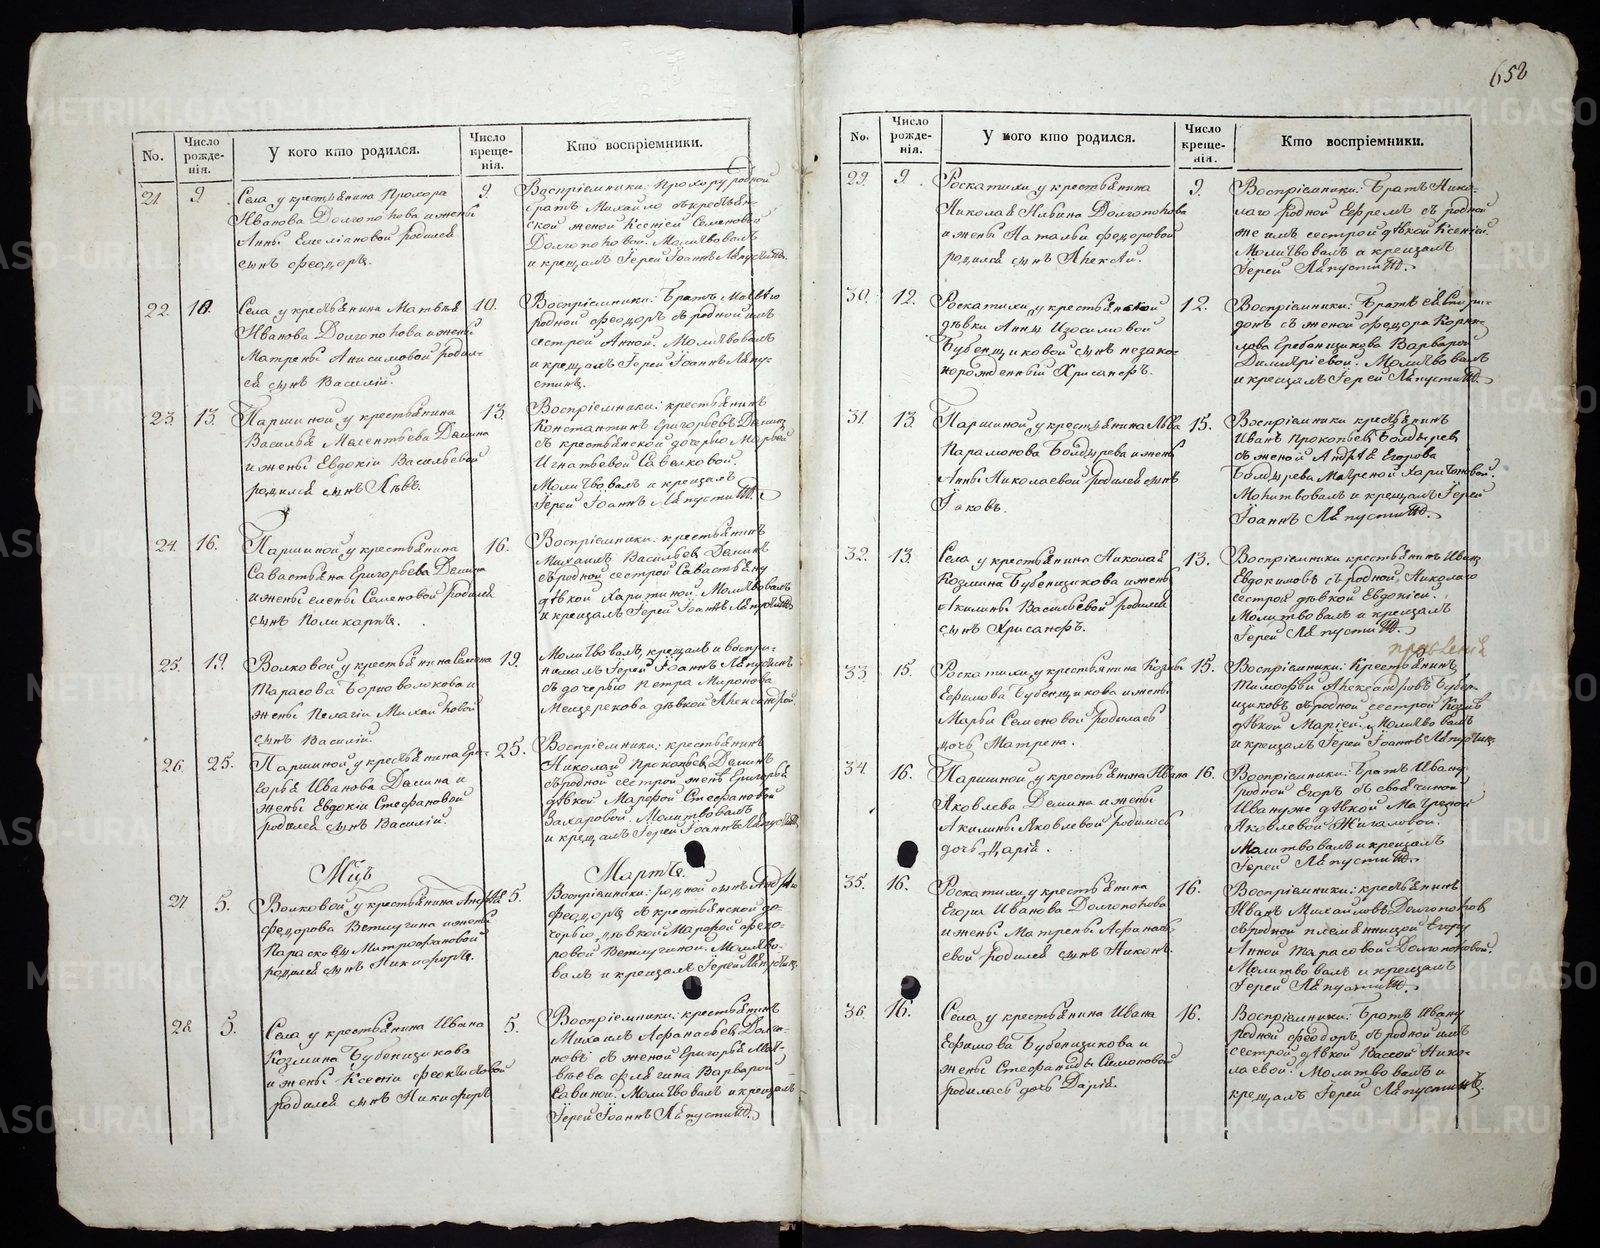 652
No.
Число рожде-нія.
У кого кто родился.
Число креще-нія.
Кто воспріемники.
21.
9.
Села у крестьянина Прохора
Иванова Долгополова и жены
Анны Емеліановой родился
сынъ Феодоръ.
9.
Воспріемники: Прохору родной
братъ Михайло съ крестьян-
ской женой Ксеніей Семеновой
Долгополовой. Молитвовалъ
и крещалъ Іерей Іоаннъ Ляпустинъ.
22.
10.
Села у крестьянина Матвѣя
Иванова Долгополова и жены
Матрены Анисимовой родил-
ся сынъ Василій.
10.
Воспріемники: братъ Матвѣю
родной Феодоръ съ родной имъ
сестрой Анной. Молитвовалъ
и крещалъ Іерей Іоаннъ Ляпу-
стинъ.
23.
13.
Паршиной у крестьянина
Василья Мелентьева Демина
и жены Евдокіи Васильевой
родился сынъ Левъ.
13.
Воспріемники: крестьянинъ
Константинъ Григорьевъ Деминъ
съ крестьянской дочерью Марѳой
Игнатьевой Савелковой.
Молитвовалъ и крещалъ
Іерей Іоаннъ Ляпустинъ.
24.
16.
Паршиной у крестьянина
Савастьяна Григорьева Демина
и жены Елены Семеновой родился
сынъ Поликарпъ.
16.
Воспріемники: крестьянинъ
Михаилъ Васильевъ Деминъ
съ родной сестрой Савастьяну
дѣвкой Харитиной. Молитвовалъ
и крещалъ Іерей Іоаннъ Ляпустинъ
25.
19.
Волковой у крестьянина Семена
Тарасова Борноволокова и
жены Пелагіи Михайловой
сынъ Василій.
19.
Молитвовалъ, крещалъ и воспри-
нималъ Іерей Іоаннъ Ляпустинъ
съ дочерью Петра Миронова
Мещерекова дѣвкой Александрой.
26.
25.
Паршиной у крестьянина Гри-
горья Иванова Демина и
жены Евдокіи Стефановой
родился сынъ Василій.
25.
Воспріемники: крестьянинъ
Николай Прокопьевъ Деминъ
съ родной сестрой женѣ Григорья
дѣвкой Марфой Стефановой
Захаровой. Молитвовалъ
и крещалъ Іерей Іоаннъ Ляпустинъ
Мцъ Мартъ.
27.
5.
Волковой у крестьянина Андрея
Федорова Ветлугина и жены
Парасковьи Митрофановой
родился сынъ Никифоръ.
5.
Воспріемники: родной сынъ Андрею
Феодоръ съ крестьянской до-
черью, дѣвкой Марфой Федо-
ровой Ветлугиной. Молитво-
валъ и крещалъ Іерей Ляпустинъ.
28.
5.
Села у крестьянина Ивана
Козмина Бубенщикова
и жены Ксеніи Феоктистовой
родился сынъ Никифоръ
5.
Воспріемники: крестьянинъ
Михаилъ Афанасьевъ
съ женой Григорья Мат-
вѣева Флягина Варварой
Савиной. Молитвовалъ и крещалъ
Іерей Іоаннъ Ляпустинъ.
No.
Число рожде-нія.
У кого кто родился.
Число креще-нія.
Кто воспріемники.
29.
9.
Роскатихи у крестьянина
Николая Ильина Долгополова
и жены Натальи Федоровой
родился сынъ Алексѣй.
9.
Воспріемники: братъ Нико-
лаю родной Ефремъ съ родной
же имъ сестрой дѣвкой Ксеніей.
Молитвовалъ и крещалъ
Іерей Ляпустинъ.
30.
12.
Роскатихи у крестьянской
дѣвки Анны Изосимовой
Бубенщиковой сынъ незако-
норожденный Хрисанфъ.
12.
Воспріемники: братъ ея Спири-
донъ съ женой Федора Корни-
лова Гребенщикова Варварой
Димитріевой. Молитвовалъ
и крещалъ Іерей Ляпустинъ.
31.
13.
Паршиной у крестьянина Льва
Парамонова Болдырева и жены
Анны Николаевой родился сынъ
Іаковъ.
15.
Воспріемники крестьянинъ
Иванъ Прокопьевъ Болдыревъ
съ женой Андрея Егорова
Болдырева Матреной Харитоновой.
Молитвовалъ и крещалъ Іерей
Іоаннъ Ляпустинъ.
32.
13.
Села у крестьянина Николая
Козмина Бубенщикова и жены
Акилины Васильевой родился
сынъ Хрисанфъ.
13.
Воспріемники крестьянинъ Иванъ
Евдокимовъ съ родной Николаю
сестрой дѣвкой Евдокіей.
Молитвовалъ и крещалъ
Іерей Ляпустинъ.
33.
15.
Роскатихи у крестьянина Козьмы
Ефимова Бубенщикова и жены
Марьи Семеновой родилась
дочь Матрена.
15.
Воспріемники: Крестьянинъ
Тимофѣй Александровъ Бубен-
щиковъ съ родной сестрой Козмѣ
дѣвкой Маріей. Молитвовалъ
и крещалъ Іерей Іоаннъ Ляпустинъ
34.
16.
Паршиной у крестьянина Ивана
Яковлева Демина и жены
Акилины Яковлевой родилась
дочь Дарія.
16.
Воспріемники: братъ Ивану
родной Егоръ съ своячиной
Ивану же дѣвкой Матреной
Яковлевой Жигаловой.
Молитвовалъ и крещалъ
Іерей Ляпустинъ.
35.
16.
Роскатихи у крестьянина
Егора Иванова Долгополова
и жены Матрены Афанась-
евой родился сынъ Никонъ.
16.
Воспріемники: крестьянинъ
Иванъ Михайловъ Долгополовъ
съ родной племянницой Егору
Анной Тарасовой Долгополовой.
Молитвовалъ и крещалъ
Іерей Ляпустинъ.
36.
16.
Села у крестьянина Ивана
Ефимова Бубенщикова и
жены Стефаниды Симоновой
родилась дочь Дарія.
16.
Воспріемники: братъ Ивану
родной Феодоръ съ родной имъ
сестрой дѣвкой Вассой Нико-
лаевой. Молитвовалъ и
крещалъ Іерей Ляпустинъ.
METRIKI.GASO-URAL.RU